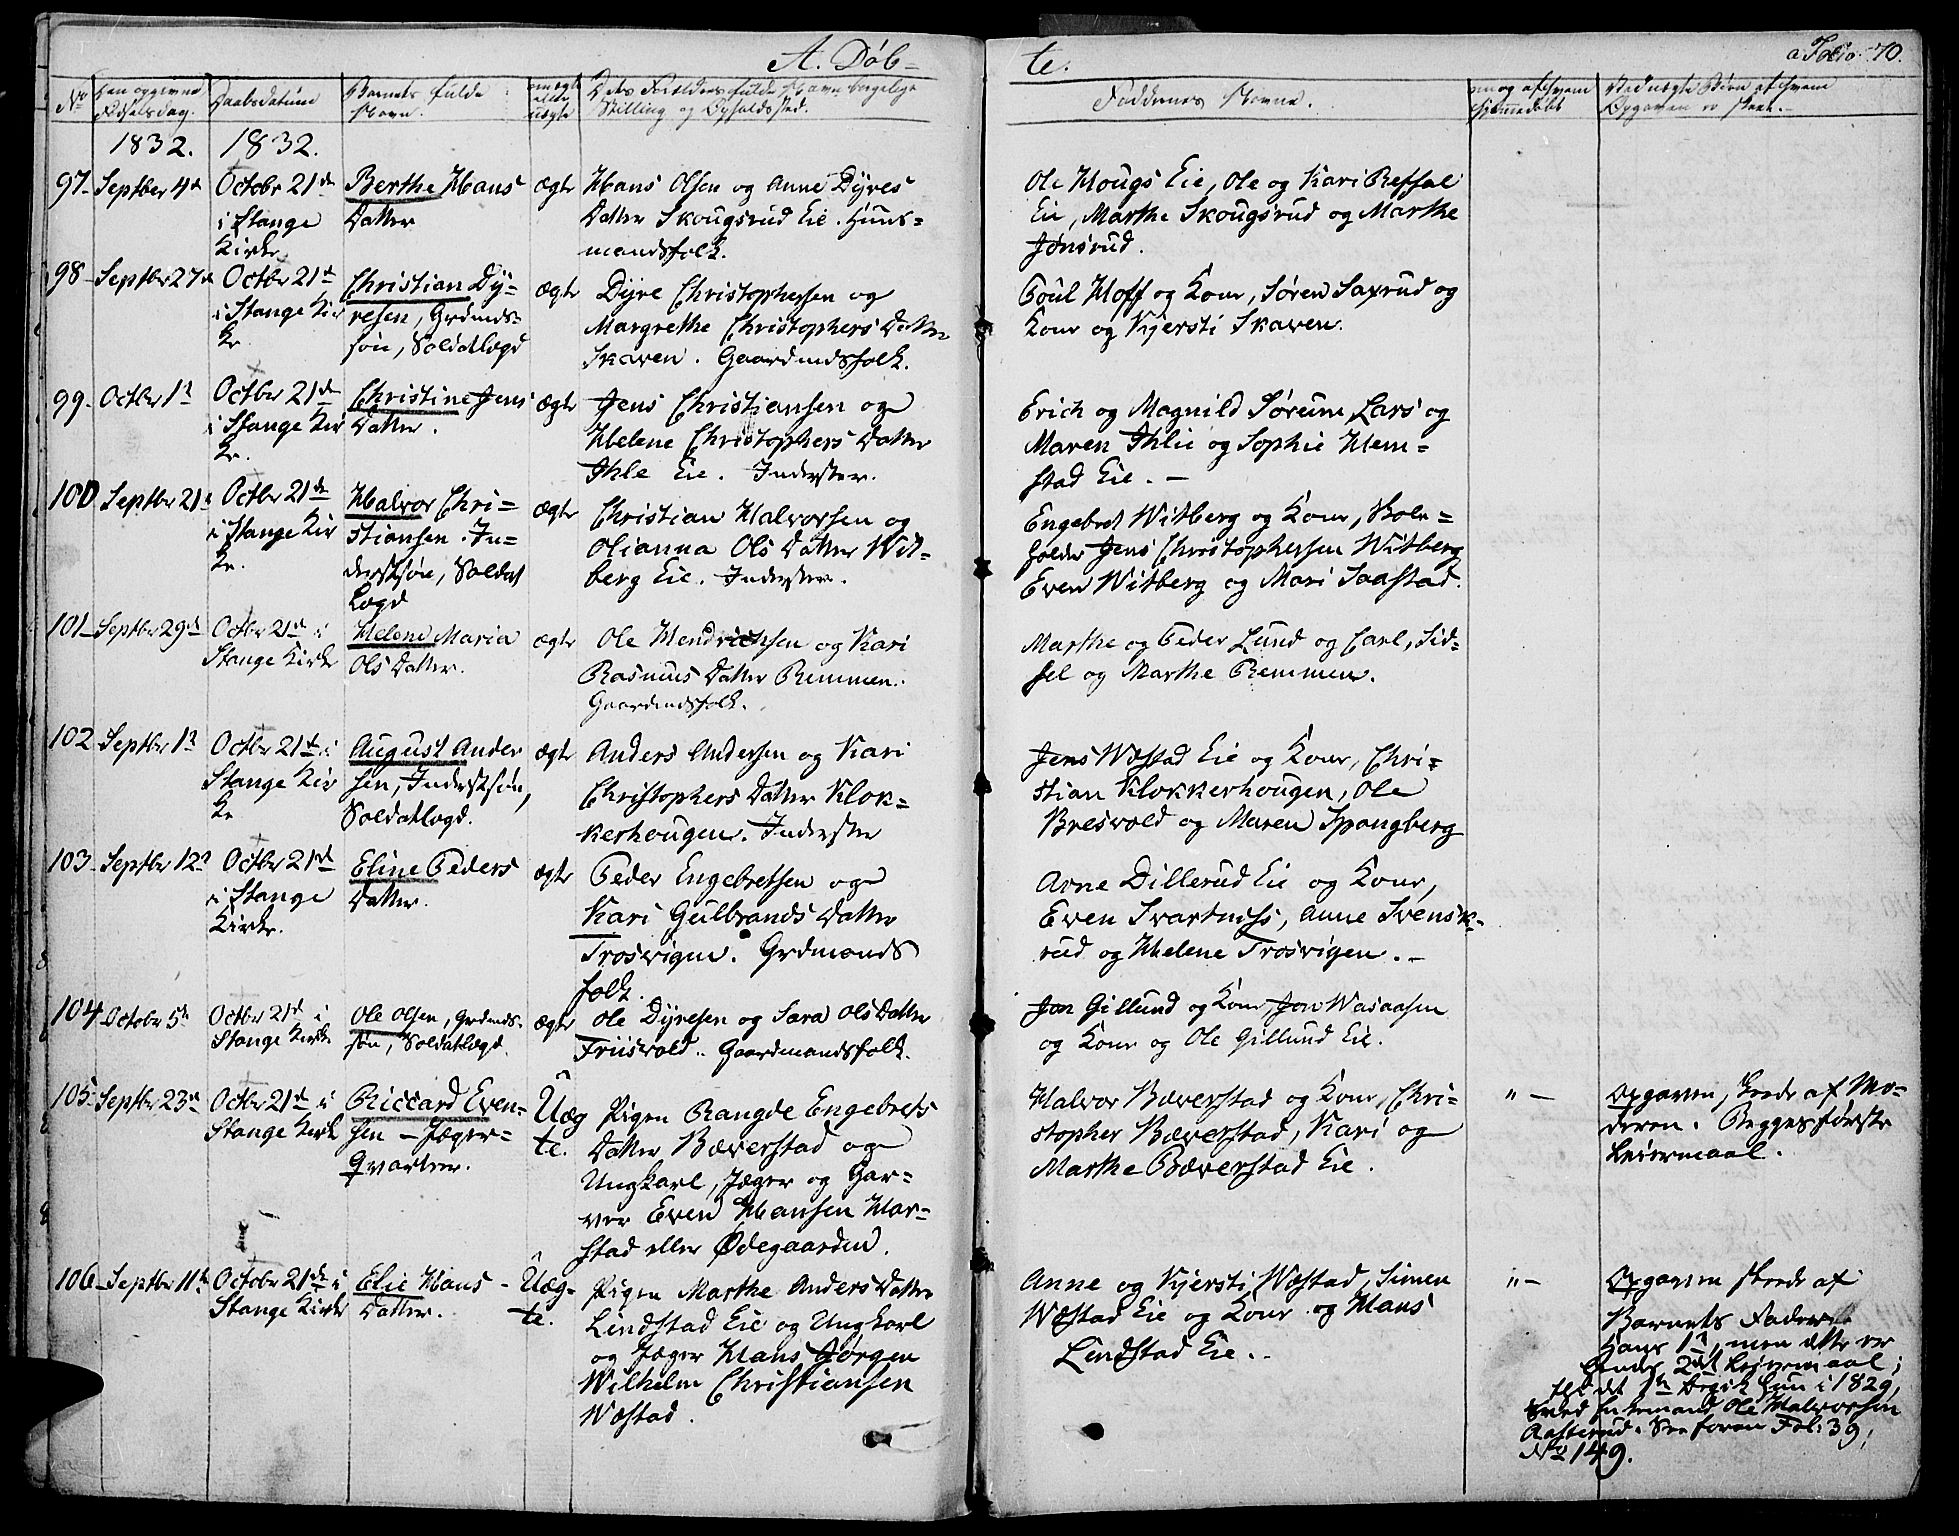 A. Døb-
te.
Folio 70.
No
Den opgivne
Fødselsdag.
Daabsdatum
Barnets fulde
Navn.
om ægte
eller
uægte
Dets Forældres fulde Navn borgelige
Stilling og Opholdssted.
Faddernes Navne.
om og af hvem
hjemmedøbt
Ved uægte Børn af hvem
Opgaven er skeet.
1832.
1832.
97- Septber 4de
Octobr 21de
i Stange
Kirke
Berthe Hans
Datter
ægte
Hans Olsen og Anne Dyres
Datter Skougsrud Eie. Huus-
mandsfolk.
Ole Hougs Eie, Ole og Kari Refsal
Eie, Marthe Skougsrud og Marthe
Jønsrud.
98- Septbr 27de
Octbr 21de
i Stange Kir
ke
Christian Dy-
resen, Grdmds-
søn, Soldatlægd
ægte
Dyre Christophersen og
Margrethe Christophers Datter
Skaven. Gaardmdsfolk.
Poul Hoff og Kone, Søren Saxrud og
Kone og Kjersti Skaven.
99- Octbr 1ste
Octbr 21de
i Stange Kir
ke.
Christine Jens
Datter.
ægte
Jens Christiansen og
Helene Christophers Datter
Ihle Eie. Inderster.
Erich og Magnild Sørum, Lars og
Maren Ihlie og Sophie Hem-
stad Eie. -
100 Septbr 21de
Octbr 21de
i Stange Kir
ke.
Halvor Chri-
stiansen. In-
derstsøn, Soldat
Lægd
ægte
Christian Halvorsen og
Olianna Ols Datter Wit-
berg Eie. Inderster.
Engebret Witberg og Kone, Skole-
holder Jens Christophersen Witberg
Even Witberg og Mari Saastad.
101- Septbr 29de
Octbr 21de i
Stange Kirke
Helene Maria
Ols Datter.
ægte
Ole Hendrichsen og Kari
Rasmus Datter Remmen.
Gaardmdsfolk.
Marthe og Peder Lund og Carl, Sid-
sel og Marthe Remmen.
102 Septbr 1ste
Octbr 21de i
Stange Kir
ke
August Ander
sen, Inderstsøn,
Soldatlægd.
ægte
Anders Andersen og Kari
Christophers Datter Klok-
kerhougen. Inderster
Jens Wæstad Eie og Kone, Chri-
stian Klokkerhougen, Ole
Bresvold og Maren Spangberg
103- Septbr 12te
Octbr 21de
i Stange
Kirke.
Eline Peders
Datter.
ægte
Peder Engebretsen og
Kari Gulbrands Datter
Trosvigen. Grdmands
folk.
Arne Dillerud Eie og Kone,
Even Svartness, Anne Svensk-
rud og Helene Trosvigen. -
104 Octobr 5te
Octbr 21de i
Stange Kirke
Ole Olsen, Grdmds-
søn, Soldatlægd.
ægte
Ole Dyresen og Sara Ols Datter
Friisvold. Gaardmandsfolk.
Jon Gillund og Kone, Jon Wasaasen
og Kone og Ole Gillund Eie.
105- Septbr 23de
Octbr 21de i
Stange Kirke
Riccard Even-
sen - Jæger-
Qvarteer.
Uæg
te.
Pigen Rangde Engebrets
Datter Bæverstad og
Ungkarl, Jæger og Gar-
ver Even Hansen Har-
stad eller Ødegaarden.
Halvor Bæverstad og Kone, Chri-
stopher Bæverstad, Kari og
Marthe Bæverstad Eie.
" -
Opgaven skede af Mo-
deren. Begges første
Leiermaal.
106- Septbr 11te
Octobr 21de i
Stange Kirke
Elie Hans-
Datter.
Uæg-
te.
Pigen Marthe Anders Datter
Lindstad Eie og Ungkarl
og Jæger Hans Jørgen
Wilhelm Christiansen
Wæstad.
Anne og Kjersti Wæstad, Simen
Wæstad Eie og Kone og Hans
Lindstad Eie.
" -
Opgaven skede af
Barnets Fader
hans 1ste, men dette er
hendes 2det Leiermaal;
thi det 1ste begik hun i 1829,
med Enkemand Ole Halvorsen
Aasterud. See foran Fol. 39,
No 149.